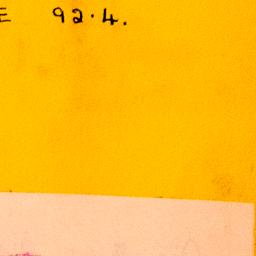 E 92.4.